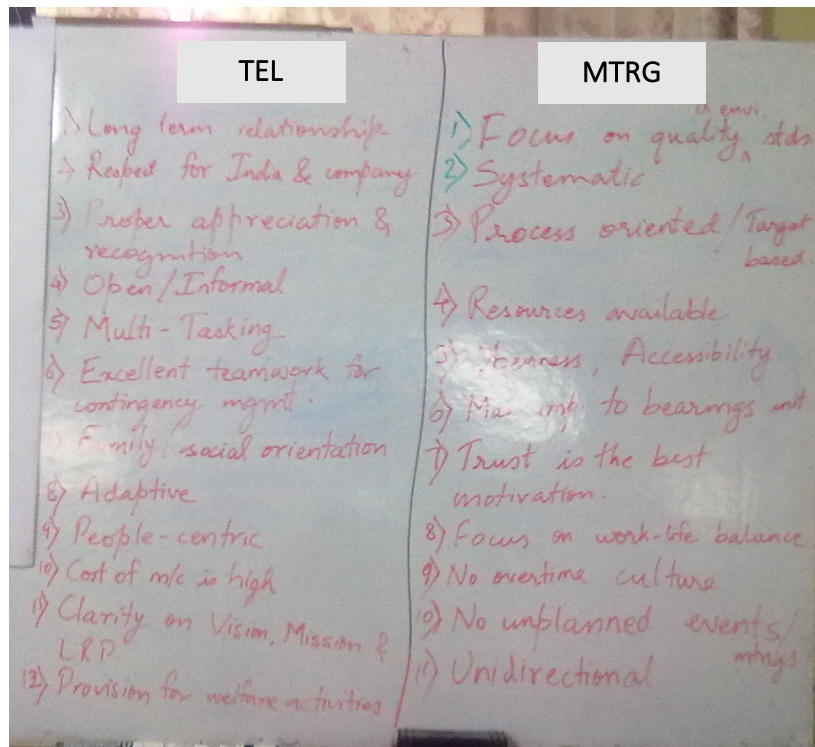 TEL
1) Long term relationship
2) Respect for India & company
3) Proper appreciation &
recognition
4) Open/Informal
5) Multi-Tasking
6) Excellent teamwork for
contingency mgmt.
7) Family/social orientation
8) Adaptive
9) People-centric
10) Cost of m/c is high
11) Clarity on Vision, Mission &
LRP.
12) Provision for welfare activities
MTRG
& envi.
1) Focus on quality ^ stds
2) Systematic
3) Process oriented/Target
based.
4) Resources available
5) Openness, Accessibility
6) imp. to bearings unit
7) Trust is the best
motivation.
8) Focus on work-life balance
9) No overtime culture
10) No unplanned events/
mtngs
11) Unidirectional